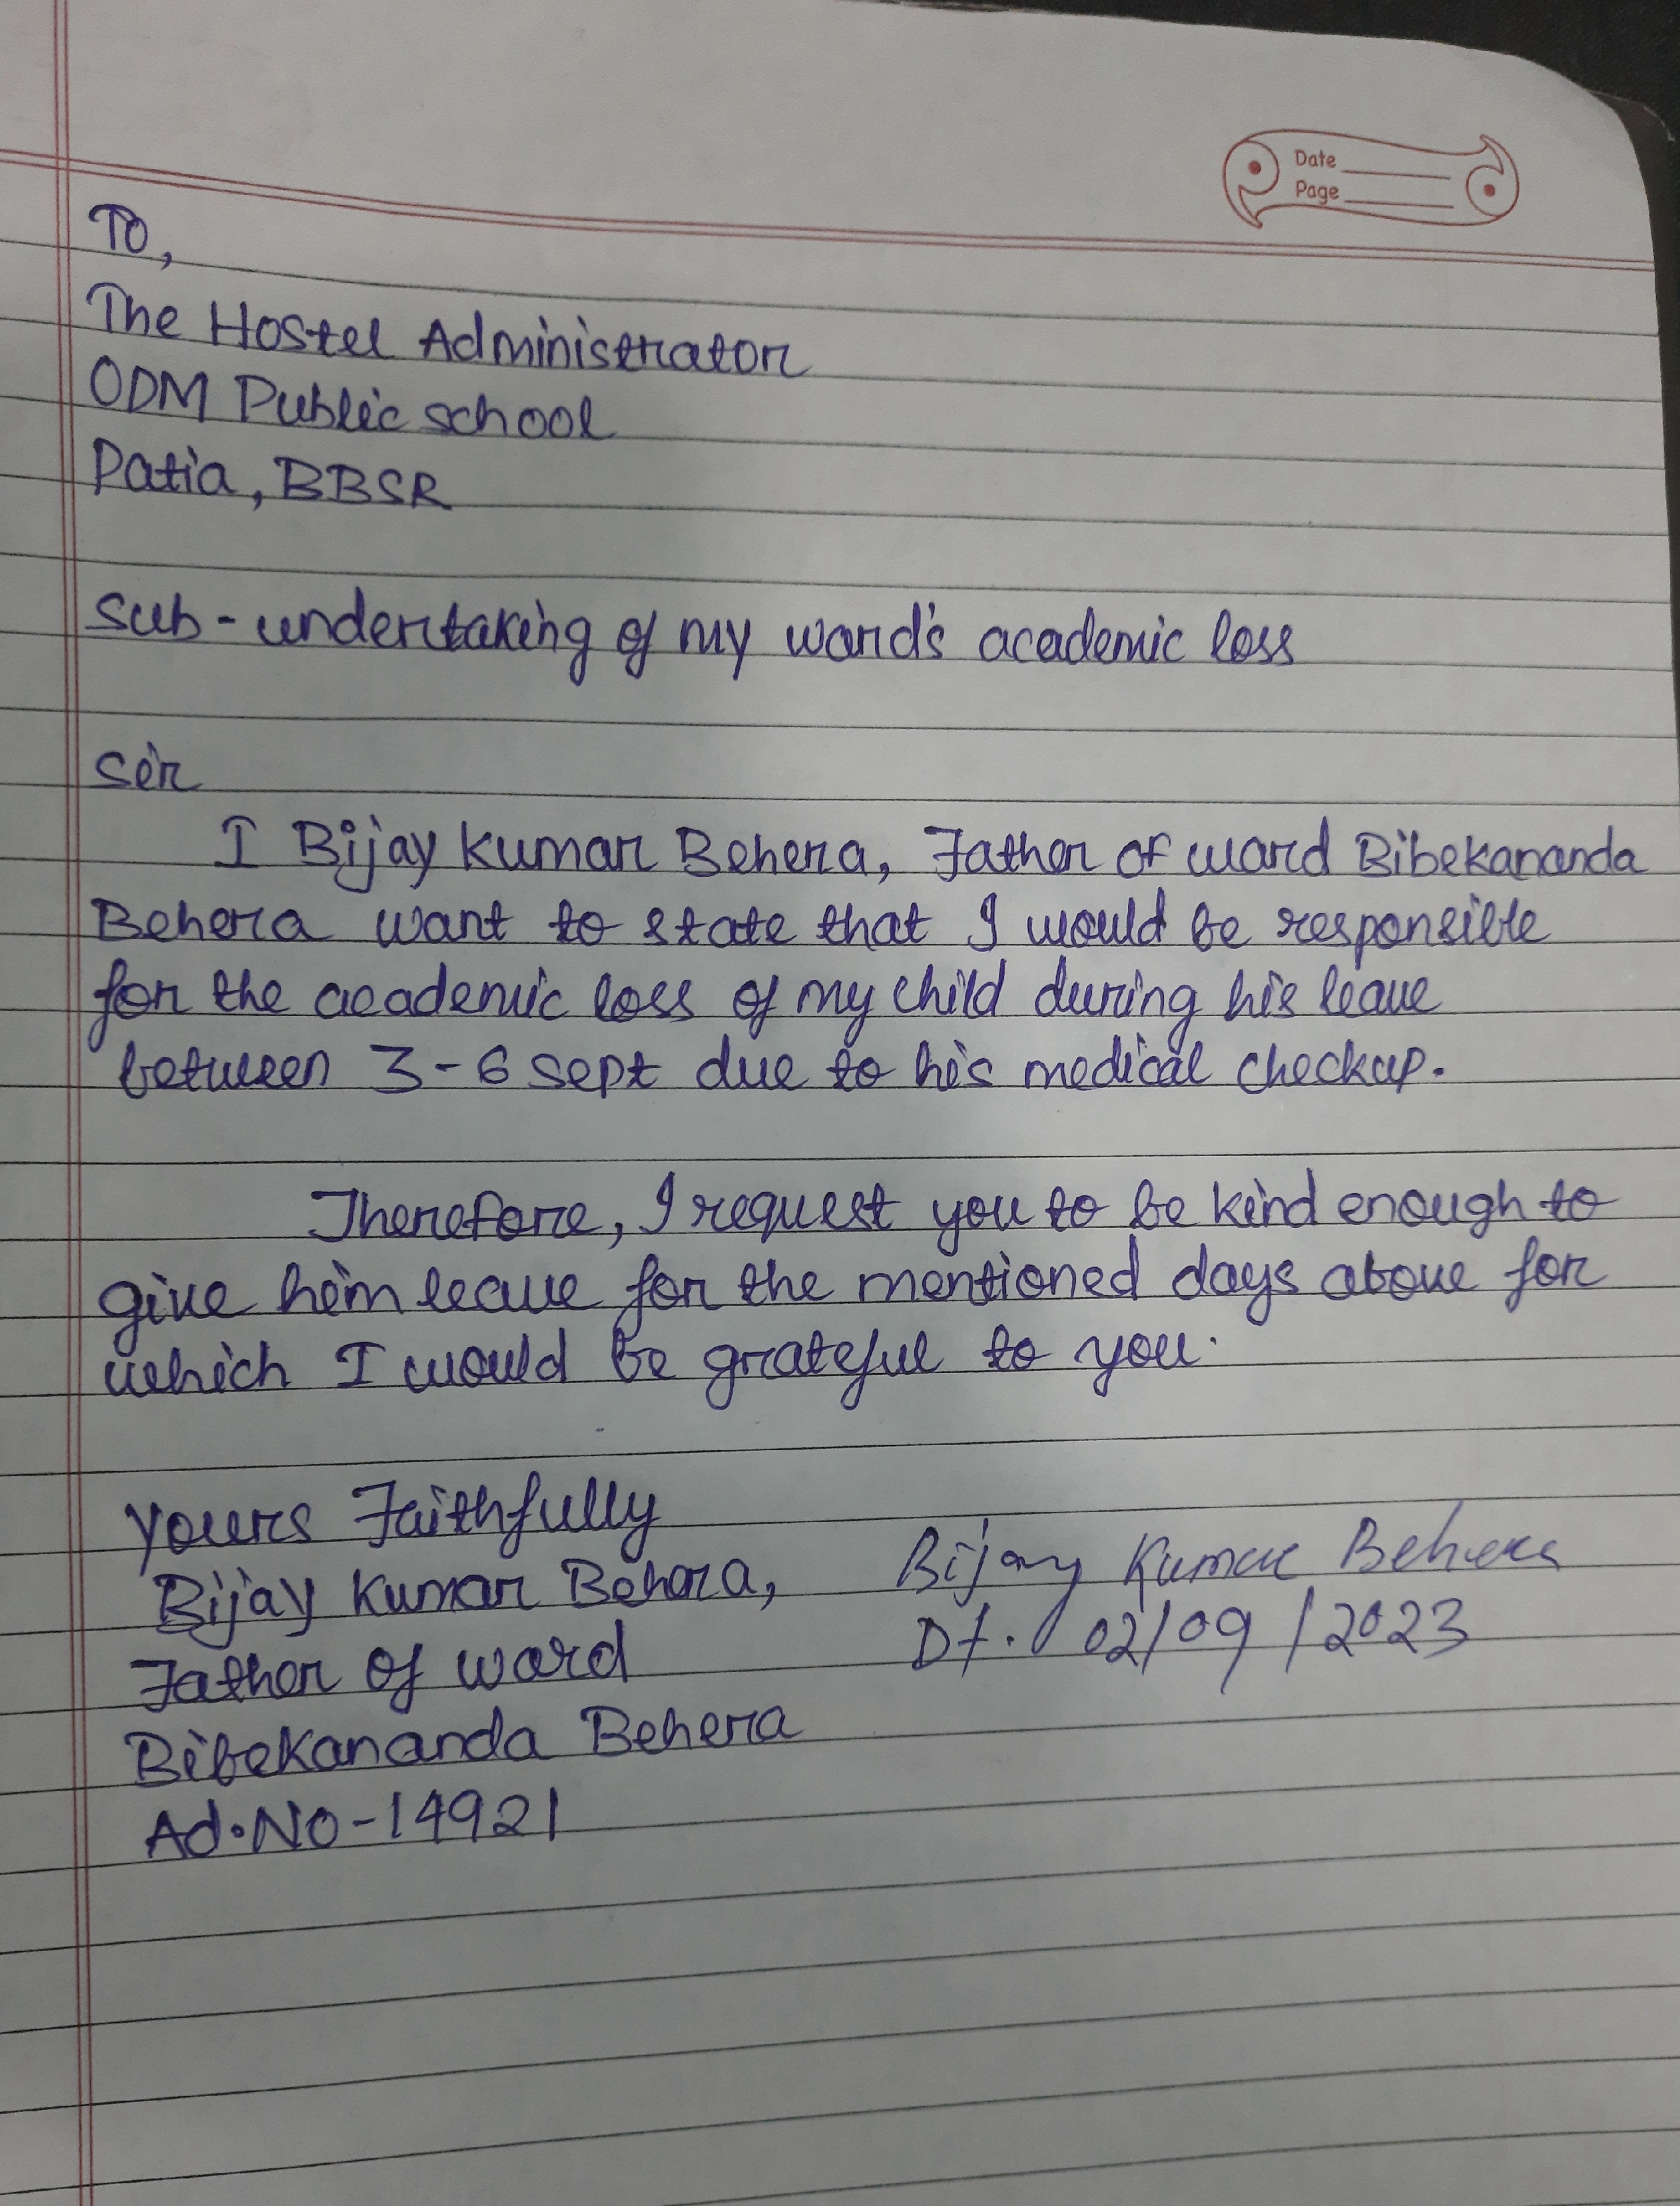 Date
Page
To,
The Hostel Administrator
ODM Public school
Patia, BBSR
Sub - undertaking of my ward's academic loss
Sir
I Bijay Kumar Behera, Father of ward Bibekananda
Behera want to state that I would be responsible
for the academic loss of my child during his leave
between 3-6 sept due to his medical checkup.
Therefore, I request you to be kind enough to
give him leave for the mentioned days above for
which I would be grateful to you.
Yours Faithfully
Bijay Kumar Behera,
Bijay Kumar Behera
Dt. 02/09/2023
Father of ward
Bibekananda Behera
Ad.No-14921